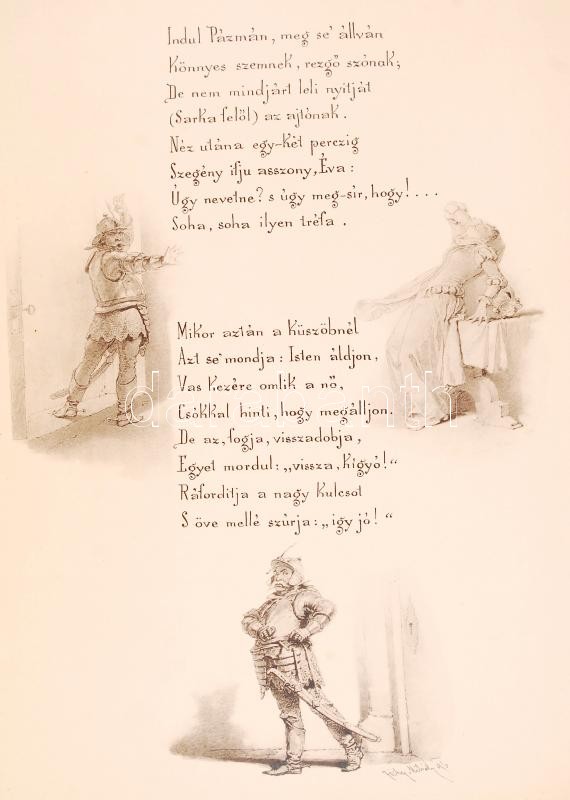 Indul Pázmán, meg se' állván
Könnyes szemnek, rezgő szónak;
De nem mindjárt leli nyitját
(Sarka felől) az ajtónak.
Néz utána egy-két perczig
Szegény ifju asszony, Éva:
Úgy nevetne? s úgy meg-sír, hogy!...
Soha, soha ilyen tréfa.
Mikor aztán a küszöbnél
Azt se' mondja: Isten áldjon,
Vas kezére omlik a nő,
Csókkal hinti, hogy megálljon.
De az, fogja, visszadobja,
Egyet mordul: „vissza, kígyó!“
Ráfordítja a nagy kulcsot
S öve mellé szúrja: „így jó!“
darabanth